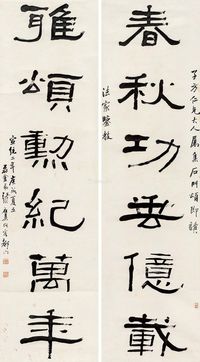 春秋功垂億載
雅頌勲紀萬年
子方仁兄大人屬集石門頌即請
法家鑒教
宣統二年